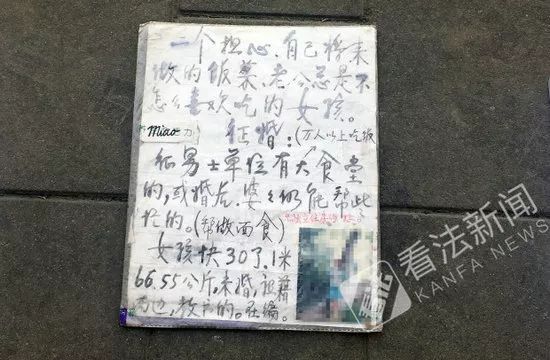 一个担心、自己将来
做的饭菜、老公总是不
怎么喜欢吃的女孩。
miao 力
征婚：(万人以上吃饭
征男士单位有大食堂
的，或婚后、婆婆仍能帮此
忙的。(帮做面食)
女孩快30了.1米
66.55公斤，未婚，祖籍
的。在编。
看法新闻
KANFA NEWS